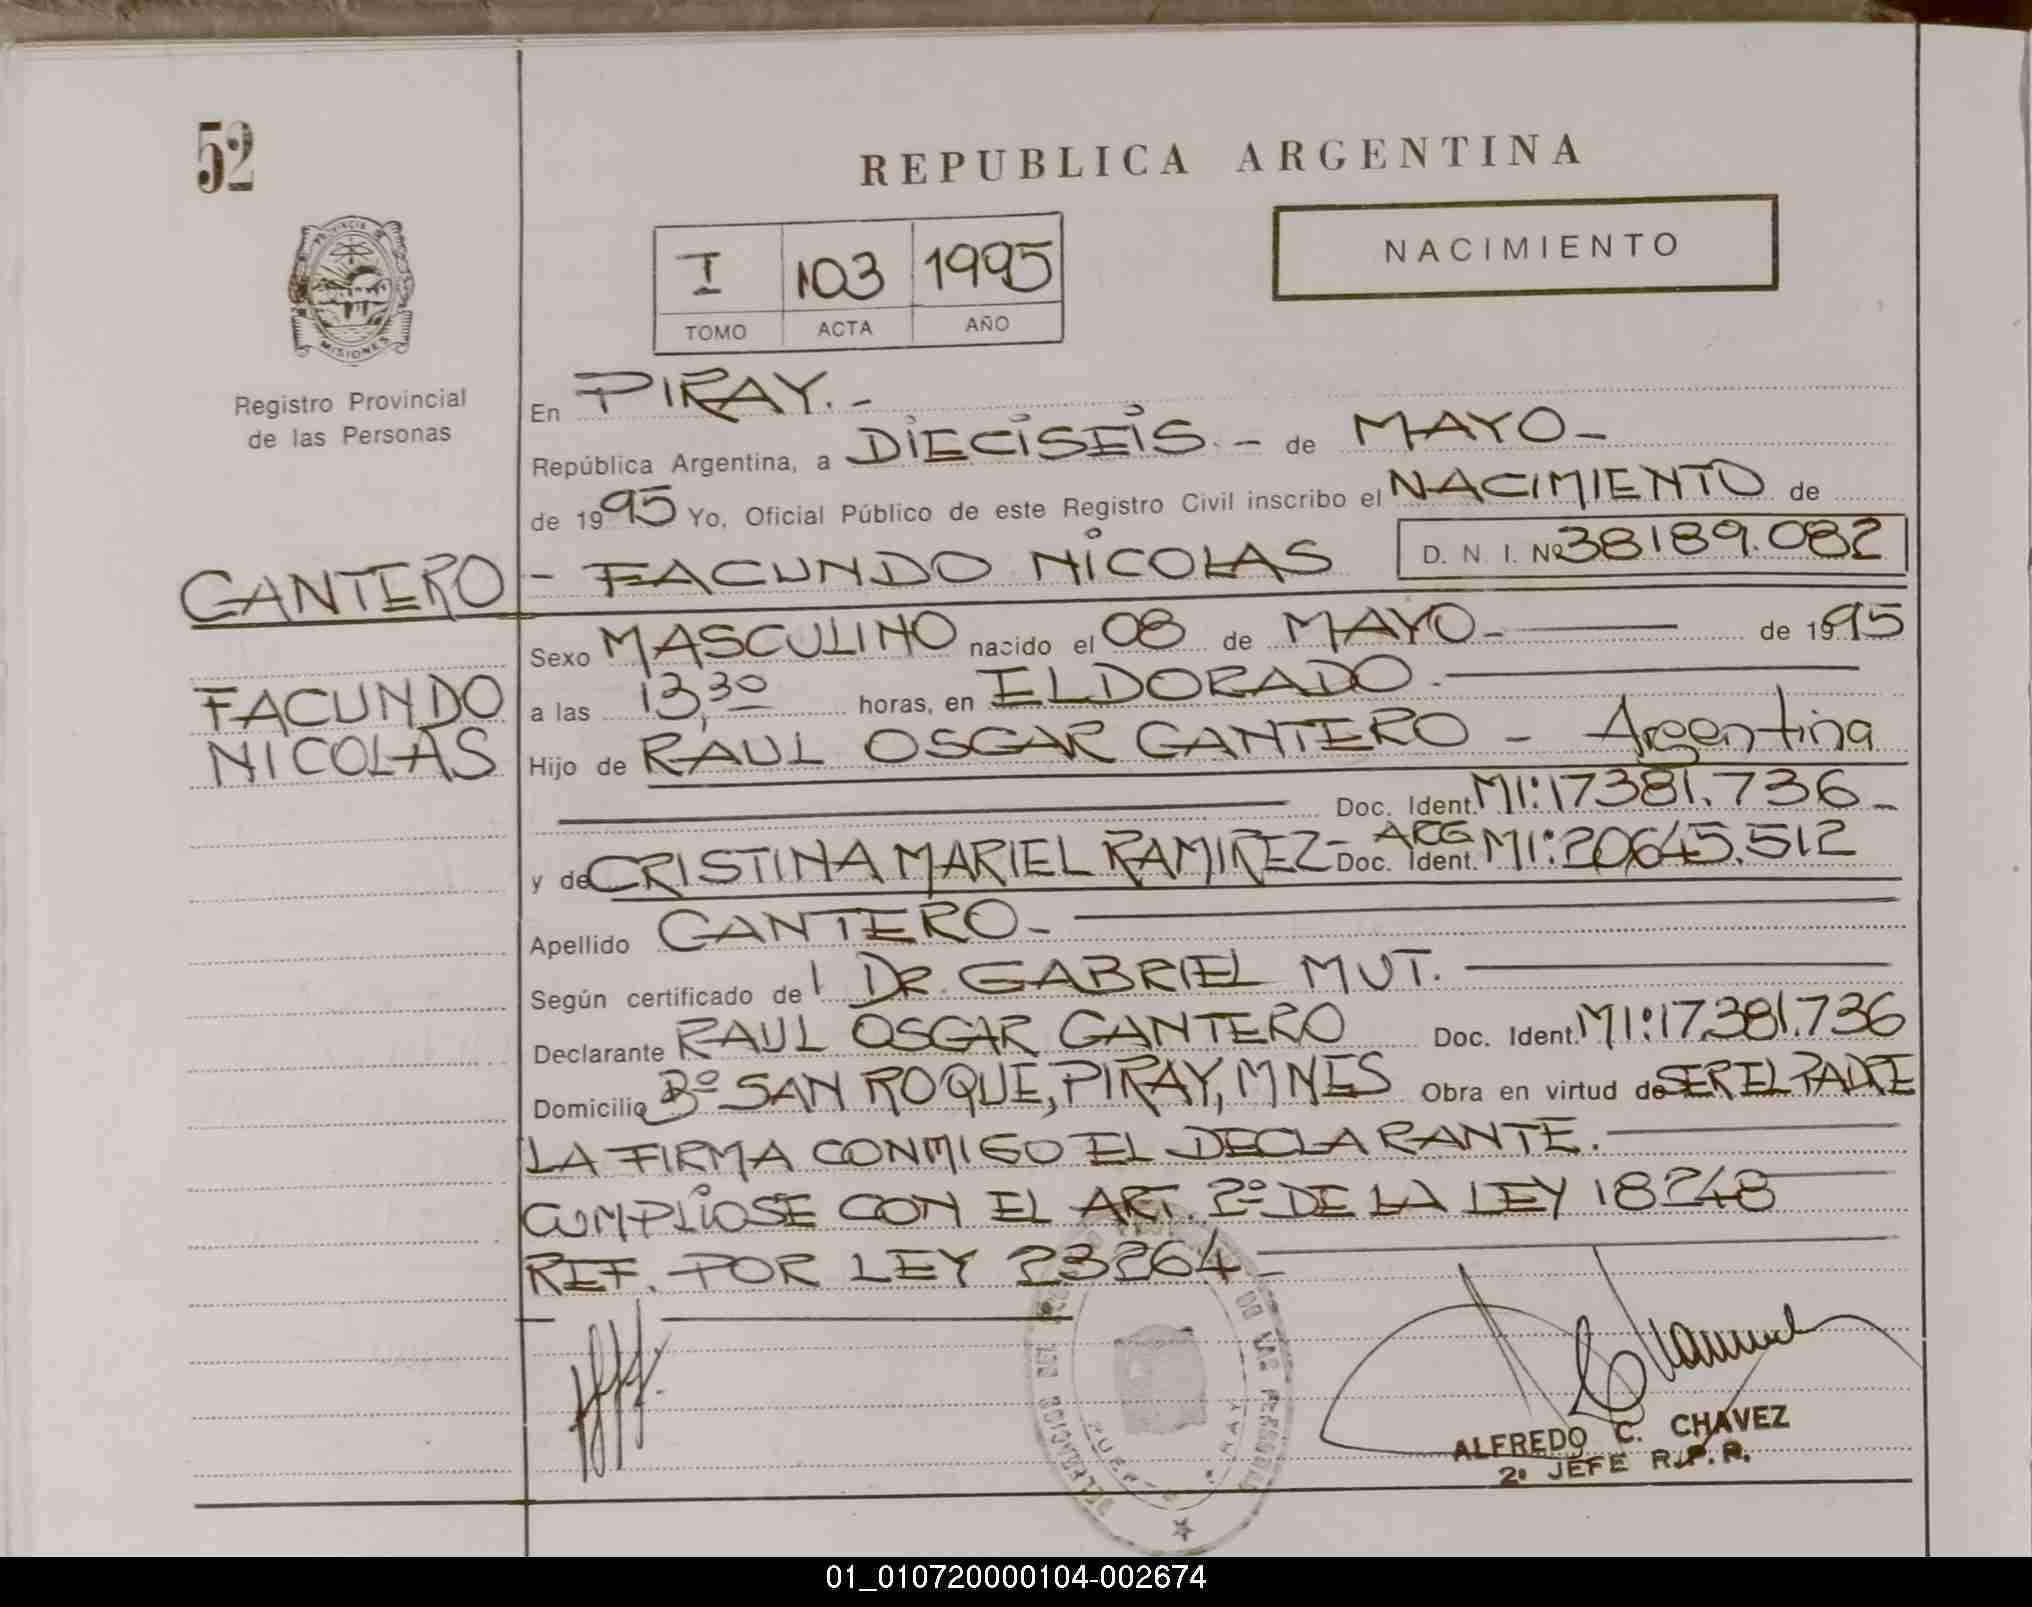 52
REPUBLICA ARGENTINA
PROVINCIA DE
MISIONES
Registro Provincial
de las Personas
I 103 1995
TOMO ACTA AÑO
NACIMIENTO
En PIRAY.-
República Argentina, a DIECISEIS.- de MAYO-
de 1995 Yo, Oficial Público de este Registro Civil inscribo el NACIMIENTO de
CANTERO - FACUNDO NICOLAS D. N. I. Nº 38189.082
Sexo MASCULINO nacido el 08 de MAYO- de 1995
FACUNDO
NICOLAS
a las 13,30 horas, en ELDORADO.
Hijo de RAUL OSCAR CANTERO - Argentina
Doc. Ident. MI:17381.736-
y de CRISTINA MARIEL RAMIREZ- ARG Doc. Ident. MI:20645.512
Apellido CANTERO-
Según certificado del DR. GABRIEL MUT.
Declarante RAUL OSCAR CANTERO Doc. Ident. MI:17.381.736
Domicilio Bº SAN ROQUE, PIRAY, MNES Obra en virtud de SER EL PADRE
LA FIRMA CONMIGO EL DECLARANTE.
CUMPLIOSE CON EL ART. 2º DE LA LEY 18248
REF. POR LEY 23264-
DE LAS PERSONAS
ALFREDO C. CHAVEZ
2º JEFE R.P.P.
01_010720000104-002674